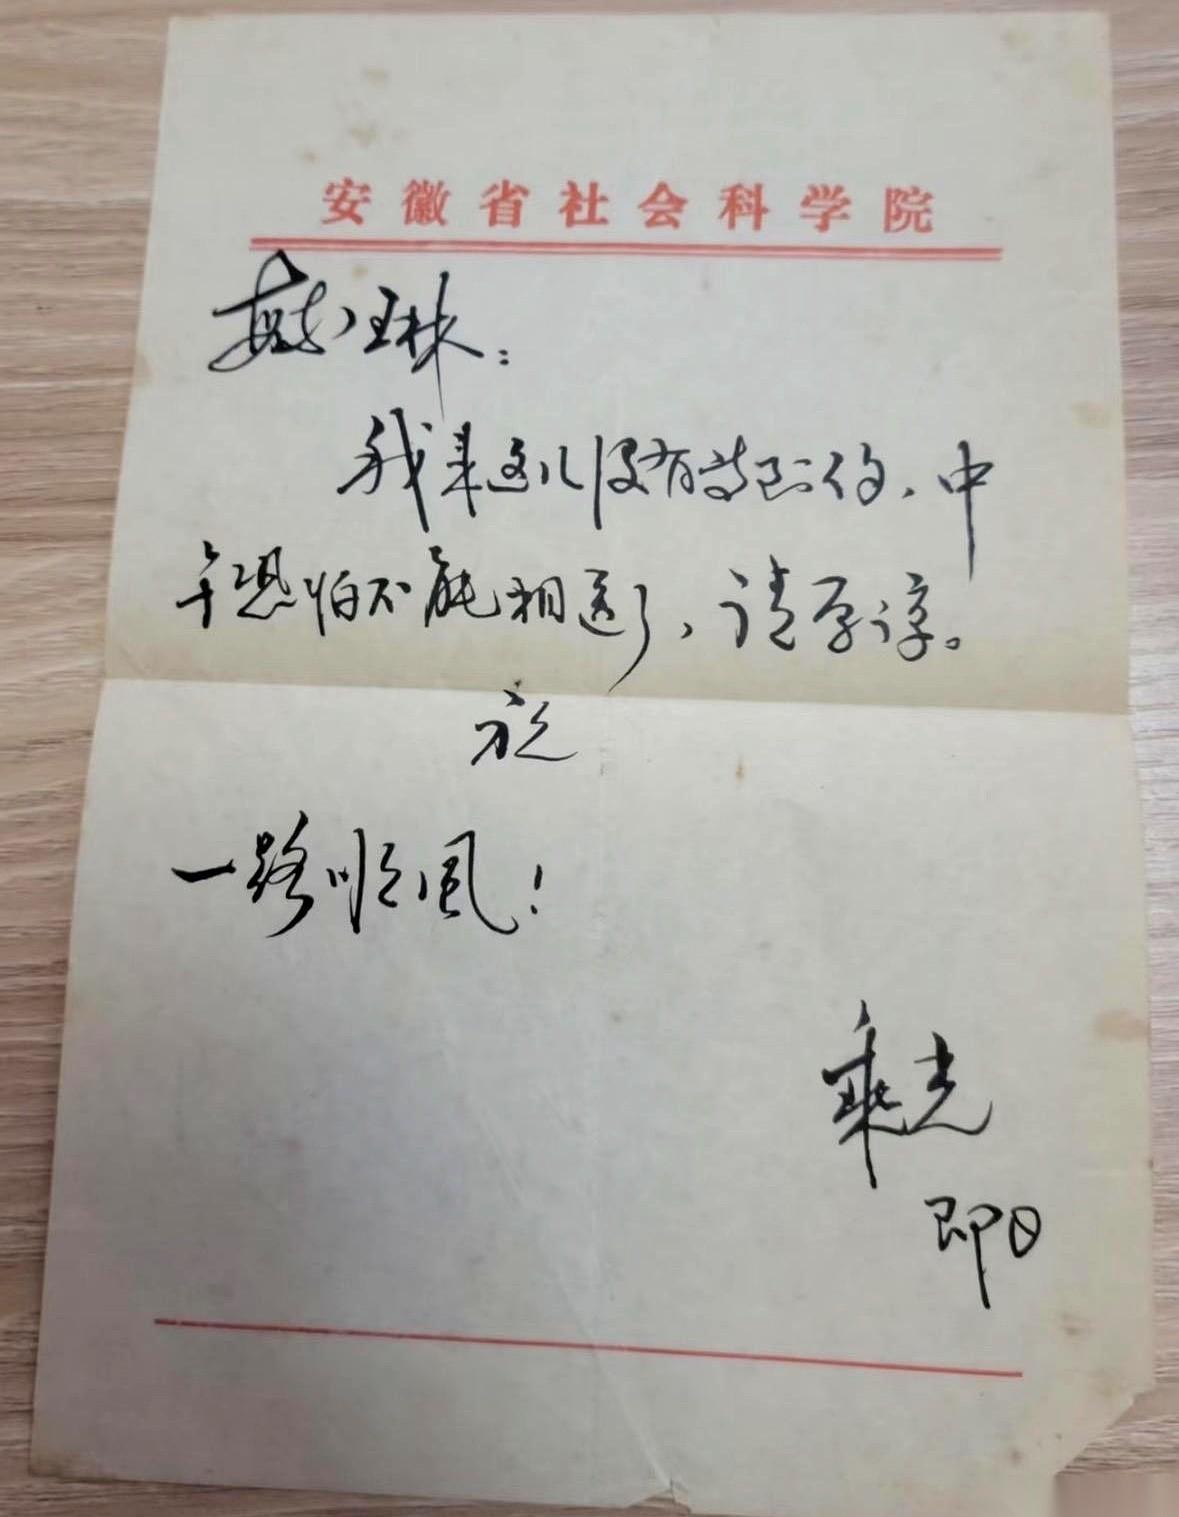 安徽省社会科学院
戴琳：
我来这儿没有等到你，中
午恐怕不能相送了，请原谅。
祝
一路顺风！
秉光
即日